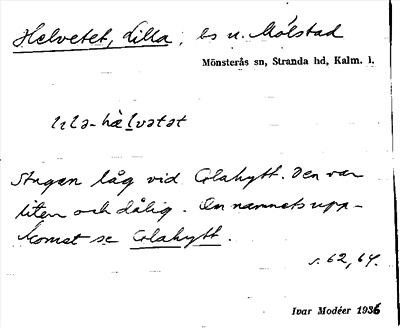 Helvetet, Lilla, bs u. Mölstad
Mönsterås sn, Stranda hd, Kalm. l.
lila-hælvətət
Stugan låg vid Glahytt. Den var
liten och dålig. Om namnets upp-
komst se Glahytt.
s. 62, 64.
Ivar Modéer 1936